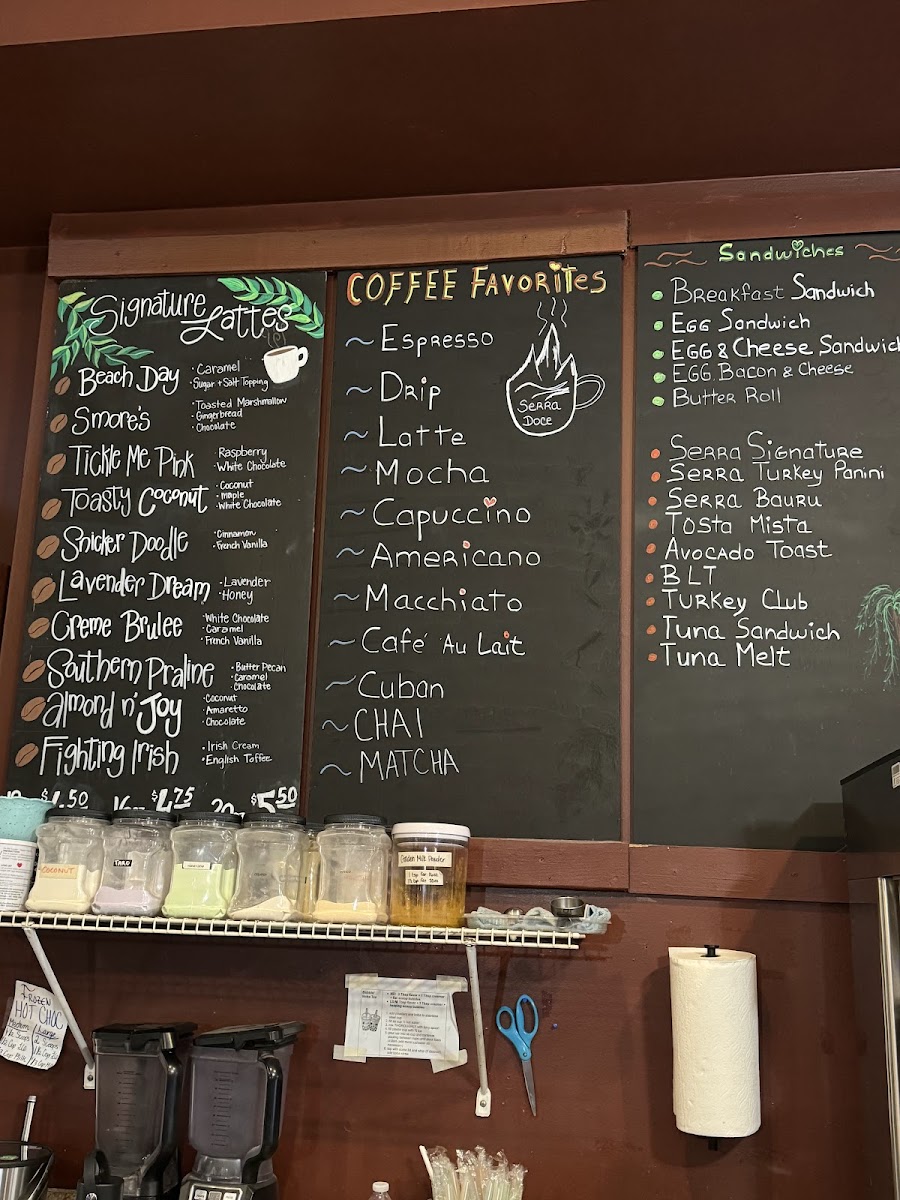 Signature
Lattes
Beach Day
· Caramel
· Sugar + Salt Topping
Smore's
· Toasted Marshmallow
· Gingerbread
· Chocolate
Tickle Me Pink
· Raspberry
· White Chocolate
Toasty Coconut
· Coconut
· maple
· White Chocolate
Snicker Doodle
· Cinnamon
· French Vanilla
Lavender Dream
· Lavender
· Honey
Creme Brulee
· White Chocolate
· Caramel
· French Vanilla
Southern Praline
· Butter Pecan
· Caramel
· Chocolate
Almond n' Joy
· Coconut
· Amaretto
· Chocolate
Fighting Irish
· Irish Cream
· English Toffee
$4.50 $4.75 $5.50
COFFEE FAVORiTES
~ Espresso
~ Drip
~ Latte
~ Mocha
~ Capuccino
~ Americano
~ Macchiato
~ Café Au Lait
~ Cuban
~ CHAI
~ MATCHA
SERRA
DOCE
Sandwiches
Breakfast Sandwich
EGG Sandwich
EGG & Cheese Sandwich
EGG. Bacon & Cheese
Butter Roll
Serra Signature
Serra Turkey Panini
Serra Bauru
Tosta Mista
Avocado Toast
BLT
Turkey Club
Tuna Sandwich
Tuna Melt
COCONUT
TARO
Golden Milk Powder
FROZEN
HOT CHOC
Medium
Large